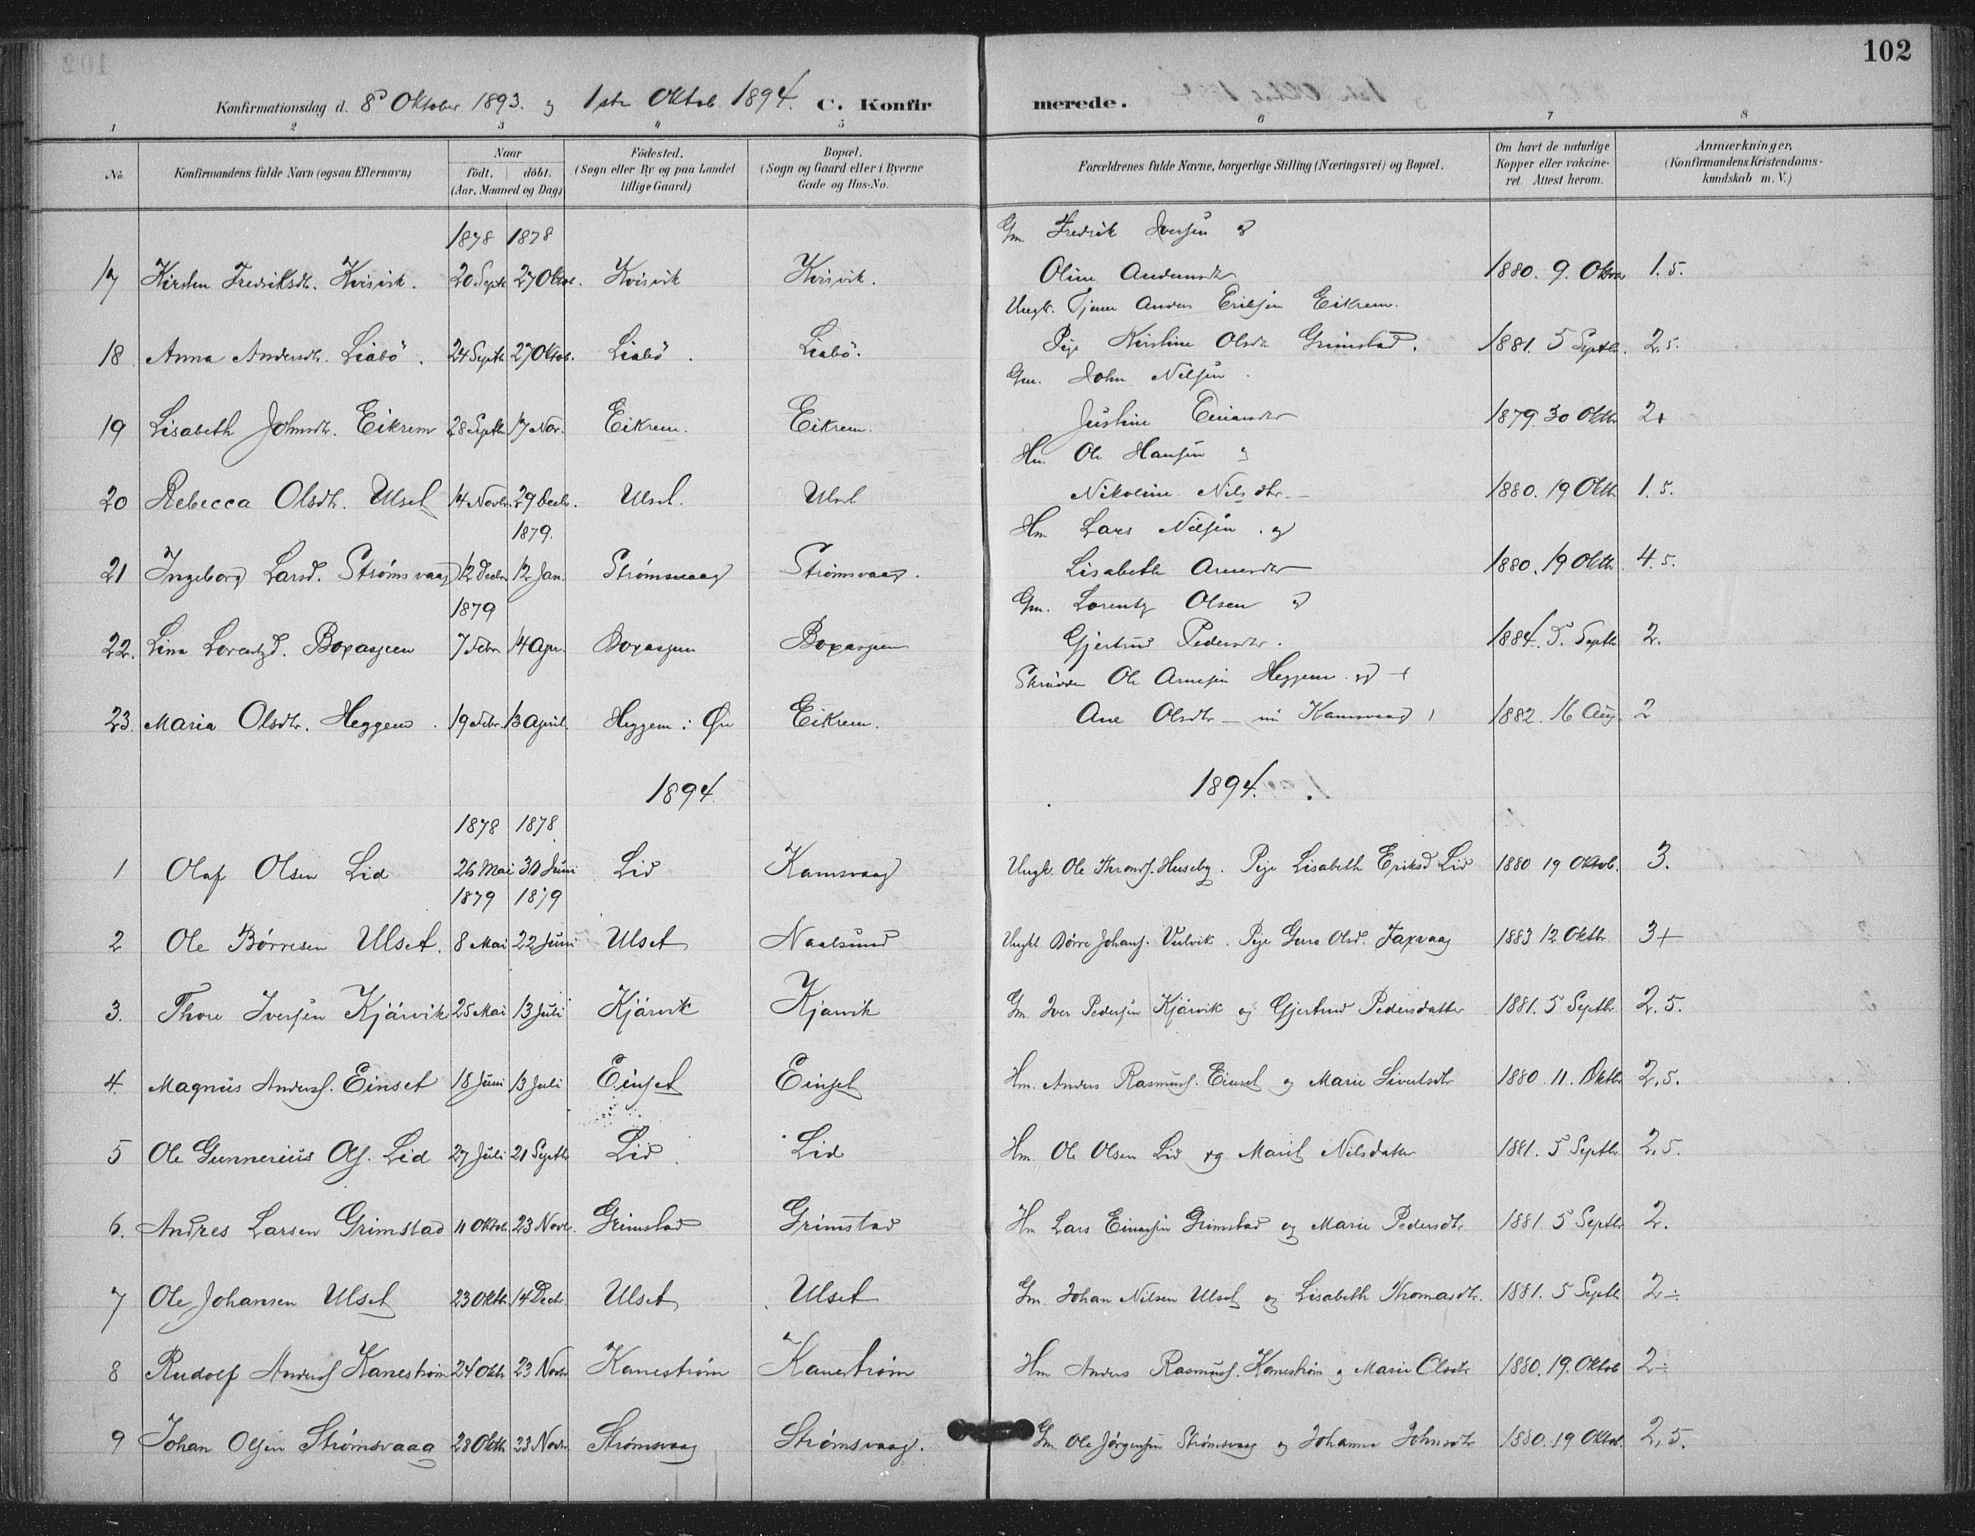 102
Konfirmationsdag d. 8de Oktober 1893. og 1ste Oktob. 1894. C. Konfir merede.
1 2 3 4 5 6 7 8
No. Konfirmandens fulde Navn (ogsaa Efternavn) Naar født. døbt. (Aar, Maaned og Dag) Fødested. (Sogn eller By og paa Landet tillige Gaard) Bopæl. (Sogn og Gaard eller i Byerne Gade og Hus-No. Forældrenes fulde Navne, borgerlige Stilling (Næringsvei) og Bopæl. Om havt de naturlige Kopper eller vakcineret. Attest herom. Anmærkninger, (Konfirmandens Kristendomskundskab m. V.)
1878 1878 Gm Fredrik Iversen og
17 Kirsten Fredriksdtr. Kvisvik. 20 Septr 27 Oktob. Kvisvik Kvisvik. Oline Andersdtr 1880. 9. Oktbr 1.5.
Ungk. Tjener Anders Eriksen Eikrem.
18 Anna Andersdtr. Liabö. 24 Septbr 27 Oktob. Liabö. Liabö. Pige Kirstine Olsdtr Grimstad. 1881. 5 Septbr. 2.5.
Gm. John Nilsen.
19 Lisabeth Johnsdtr. Eikrem 28 Septbr 17 Nov. Eikrem. Eikrem. Justine Einarsdtr 1879. 30 Oktbr 2+
Hm. Ole Hansen og
20 Rebecca Olsdtr. Ulset 14 Novbr. 29 Decbr. Ulset. Ulset Nikoline Nilsdtr. 1880. 19 Oktb. 1.5.
1879. Hm Lars Nilsen. og
21 Ingeborg Larsd. Strømsvaag 12 Decbr 12 Jan. Strømsvaag Strømsvaag. Lisabeth Arnesdtr 1880. 19 Oktbr. 4.5.
1879 Gm. Lorentz Olsen og
22. Lina Lorentzd. Boxaspen 7 Febr 14 Apr. Boxaspen Boxaspen Gjertrud Pedersdtr. 1884. 5. Septbr 2.
Ole Arnesen Heggem og
23. Maria Olsdtr. Heggem. 19 Febr. 13 April. Heggem i Øre Eikrem. Ane Olsdtr nu Kamsvaag 1882. 16 Aug. 2
1894 1894.
1878 1878
1 Olaf Olsen Lid 26 Mai 30 Juni Lid Kamsvaag Ungk. Ole Thronds. Huseby. Pige Lisabeth Eriksd Lid 1880 19 Oktob. 3.
1879 1879
2 Ole Børresen Ulset. 8 Mai 22 Juni Ulset Naalsund Ungkl Børre Johans. Vulvik. Pige Guro Olsd. Taxvaag 1883 12 Oktbr. 3+
3. Thore Iversen Kjärvik 25 Mai 13 Juli Kjärvik Kjärvik Gm Iver Pedersen Kjärvik og Gjertrud Pedersdatter 1881. 5 Septbr. 2.5.
4. Magnus Anders. Einset 18 Juni 13 Juli Einset Einset Hm. Anders Rasmus. Einset og Marie Sivertsdtr 1880 11. Oktbr 2.5.
5 Ole Gunnerius Ols. Lid 27 Juli 21 Septbr Lid. Lid Hm. Ole Olsen Lid og Marit Nilsdatter 1881. 5 Septbr 2.5.
6. Andres Larsen Grimstad 11 Oktob. 23 Novbr. Grimstad Grimstad Hm Lars Einarsen Grimstad og Marie Pedersdtr. 1881. 5 Septbr 2.
7 Ole Johansen Ulset 23 Oktbr. 14 Decbr. Ulset Ulset Gm. Johan Nilsen Ulset og Lisabeth Thomasdtr. 1881. 5 Septbr 2÷
8 Rudolf Anders. Kanestrøm 24 Oktb 23 Novbr Kanestrøm Kanestrøm Hm Anders Rasmus. Kanestrøm og Marie Olsdtr 1880. 19. Oktob 2÷
9 Johan Olsen Strømsvaag 28 Oktbr 23 Novbr Strømsvaag Strømsvaag. Gm. Ole Jørgensen Strømsvaag og Johanne Johnsdtr 1880. 19 Oktob. 2.5.